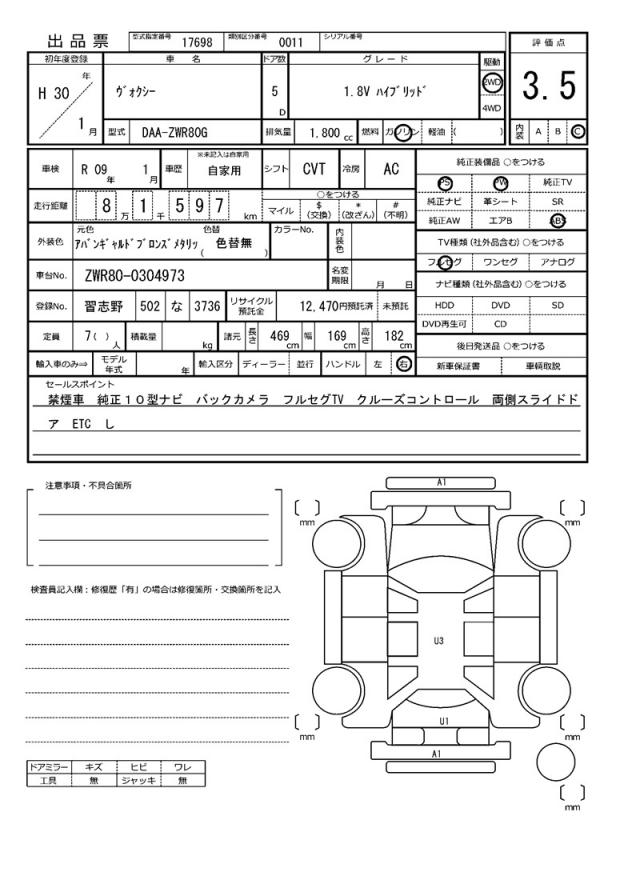 出品票 型式指定番号 17698 類別区分番号 0011 シリアル番号
評価点
初年度登録 車名 ドア数 グレード 駆動
H 30 年 1 月
ヴォクシー 5 D 1.8V ハイブリッド 2WD 4WD
3.5
型式 DAA-ZWR80G 排気量 1.800 cc 燃料 ガソリン 軽油 ( )
内装 A B C
車検 R 09 年 1 月 車歴 ※未記入は自家用 自家用 シフト CVT 冷房 AC
純正装備品 ○をつける
PS PW 純正TV
走行距離 8 万 1 千 5 9 7 km
○をつける
マイル $ (交換) * (改ざん) # (不明)
純正ナビ 革シート SR
純正AW エアB ABS
外装色 元色 アバンギャルドブロンズメタリッ 色替 ( 色替無 ) カラーNo. 内装色
TV種類 (社外品含む) ○をつける
フルセグ ワンセグ アナログ
車台No. ZWR80-0304973 名変期限 月 日
ナビ種類 (社外品含む) ○をつける
登録No. 習志野 502 な 3736 リサイクル預託金 12,470円預託済 未預託
HDD DVD SD
DVD再生可 CD
定員 7 ( ) 人 積載量 kg 諸元 長さ 469 cm 幅 169 cm 高さ 182 cm
後日発送品 ○をつける
輸入車のみ⇒ モデル年式 年 輸入区分 ディーラー 並行 ハンドル 左 右
新車保証書 車輌取説
セールスポイント
禁煙車 純正10型ナビ バックカメラ フルセグTV クルーズコントロール 両側スライドド
ア ETC し
注意事項・不具合箇所
A1
mm
mm
検査員記入欄:修復歴「有」の場合は修復箇所・交換箇所を記入
U3
U1
mm
mm
A1
ドアミラー キズ ヒビ ワレ
工具 無 ジャッキ 無
mm